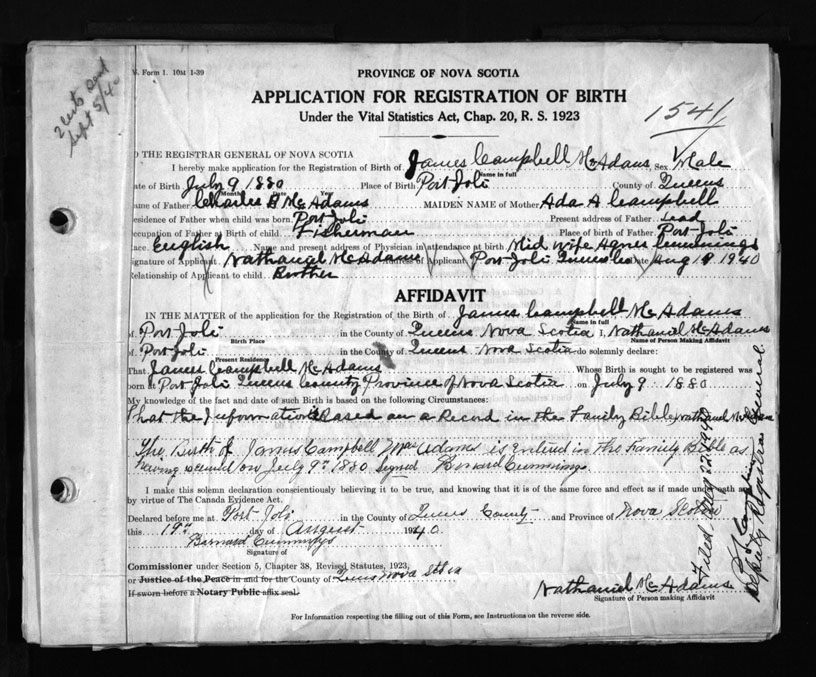 V. Form 1. 10M 1-39
2 certs
Sept 5/40
PROVINCE OF NOVA SCOTIA
APPLICATION FOR REGISTRATION OF BIRTH
Under the Vital Statistics Act, Chap. 20, R. S. 1923
1541
TO THE REGISTRAR GENERAL OF NOVA SCOTIA
I hereby make application for the Registration of Birth of James Campbell McAdams Sex Male
Name in full
Date of Birth July 9 1880 Place of Birth Port Joli County of Queens
Month Date Year
Name of Father Charles B McAdams MAIDEN NAME of Mother Ada A Campbell
Residence of Father when child was born Port Joli Present address of Father
Occupation of Father at Birth of child Fisherman Place of birth of Father Port Joli
Race English Name and present address of Physician in attendance at birth Mid Wife Agnes Cummings
Signature of Applicant Nathaniel McAdams Address of Applicant Port Joli Queens Co Date Aug 19 1940
Relationship of Applicant to child Brother
AFFIDAVIT
IN THE MATTER of the application for the Registration of the Birth of James Campbell McAdams
Name in full
of Port Joli in the County of Queens Nova Scotia I, Nathaniel McAdams
Birth Place Name of Person Making Affidavit
of Port Joli in the County of Queens Nova Scotia do solemnly declare:
Present Residence
That James Campbell McAdams Whose Birth is sought to be registered was
born at Port Joli Queens County Province of Nova Scotia on July 9 1880
My knowledge of the fact and date of such Birth is based on the following Circumstances:
That the Information is Based on a Record in the Family Bible Nathaniel McAdams
The Birth of James Campbell McAdams is entered in the Family Bible as
having occurred on July 9th 1880 Signed Barnard Cummings
I make this solemn declaration conscientiously believing it to be true, and knowing that it is of the same force and effect as if made under oath and
by virtue of The Canada Evidence Act.
Declared before me at Port Joli in the County of Queens County and Province of Nova Scotia
this 19th day of August 1940
Barnard Cummings
Signature of
Commissioner under Section 5, Chapter 38, Revised Statutes, 1923,
or Justice of the Peace in and for the County of Queens Nova Scotia
If sworn before a Notary Public affix seal.
Nathaniel McAdams
Signature of Person making Affidavit
For Information respecting the filling out of this Form, see Instructions on the reverse side.
Filed Aug 22 1940
Deputy Registrar General